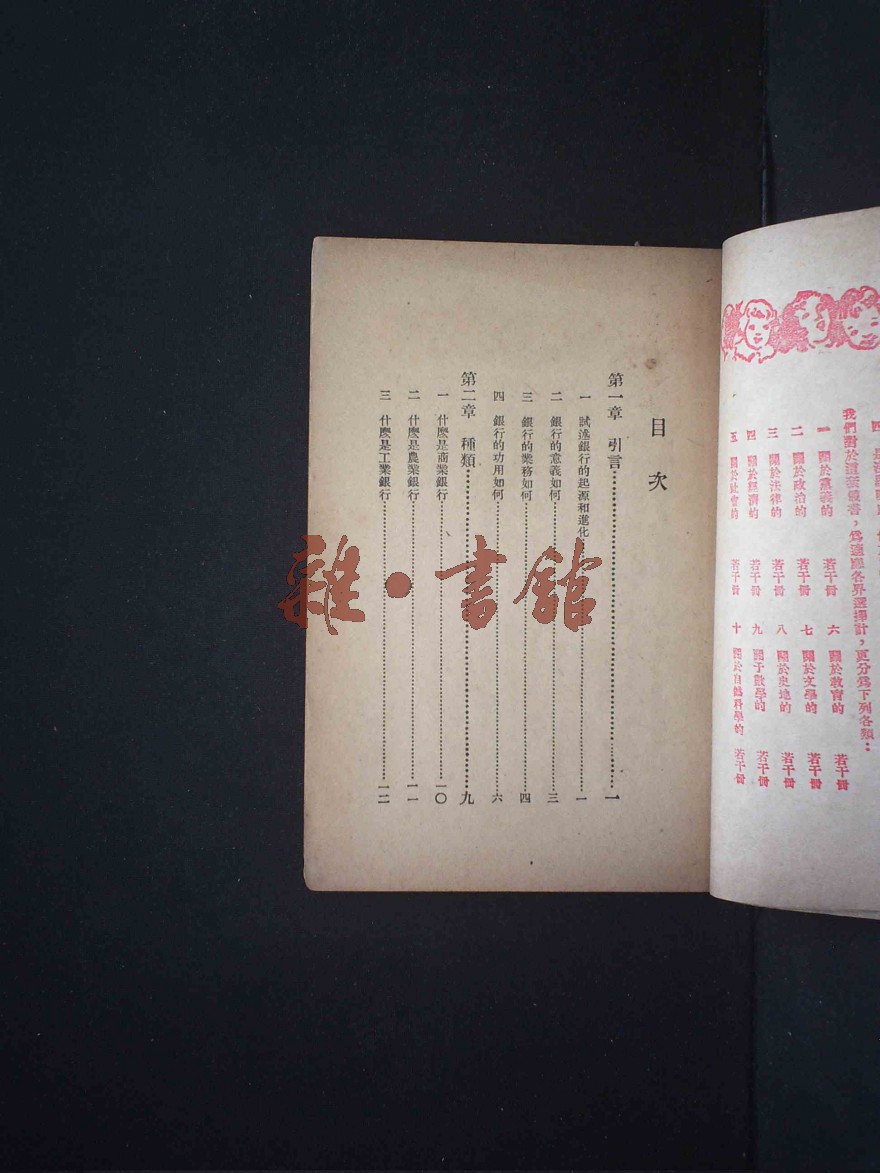 我們對於這套叢書，爲適應各界選擇計，更分爲下列各類：
一　關於黨義的　若干冊　六　關於教育的　若干冊
二　關於政治的　若干冊　七　關於文學的　若干冊
三　關於法律的　若干冊　八　關於史地的　若干冊
四　關於經濟的　若干冊　九　關于數學的　若干冊
五　關於社會的　若干冊　十　關於自然科學的　若干冊
目次
第一章　引言…………一
一　試述銀行的起源和進化…………一
二　銀行的意義如何…………三
三　銀行的業務如何…………四
四　銀行的功用如何…………六
第二章　種類…………九
一　什麼是商業銀行…………一〇
二　什麼是農業銀行…………一一
三　什麼是工業銀行…………一二
雜·書館